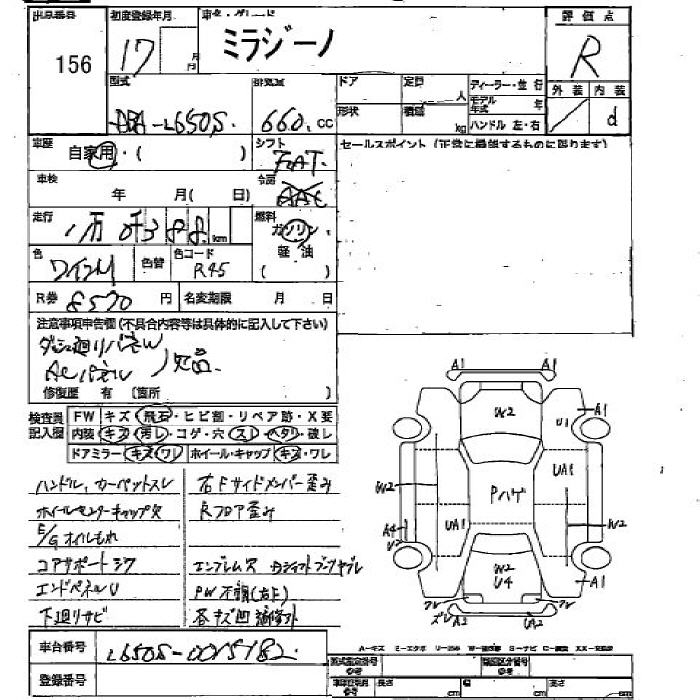 出品番号 初度登録年月 車名・グレード 評価点
156 17 年 月 ミラジーノ R
型式 排気量 ドア 定員 人 ディーラー・並行 外装 内装
DBA-L650S 660 CC 形状 積載 kg モデル年式 年 ハンドル 左・右 d
車歴 自家用・( ) シフト FAT セールスポイント (正常に機能するものに限ります)
車検 年 月( 日) 冷房 AAC
走行 1万 km 燃料 ガソリン
色 ワインM 色替 色コード R45 軽油 ( )
R券 8570 円 名変期限 月 日
注意事項申告欄 (不具合内容等は具体的に記入して下さい)
ダッシュ廻りパネル
ACパネル 欠品
修復歴 有 (箇所 )
検査員 FW キズ・飛石・ヒビ割・リペア跡・X要
記入欄 内装 キズ・汚レ・コゲ・穴・スレ・ヘタリ・破レ
ドアミラー キズ・ワレ ホイール・キャップ キズ・ワレ
ハンドル、カーペットスレ 右Fサイドメンバー歪み
ホイールセンターキャップ欠 Rフロア歪み
E/Gオイルもれ
コアサポートシワ エンブレム欠 ブーツヤブレ
エンドパネルU PW不調(右F)
下廻りサビ 各キズ凹補修外
車台番号 L650S-0015182
登録番号
A1
W2 U1 A1
W2 UA1
Pハゲ
A4 UA1 W2
U2
W2 U4 A1
ワレ ワレ
ズレ A3 UA2
A-キズ E-エクボ U-凹 W-波 S-サビ C-腐食 XX-交換済
型式指定番号 類別区分番号
参考
長さ cm 幅 cm 高さ cm